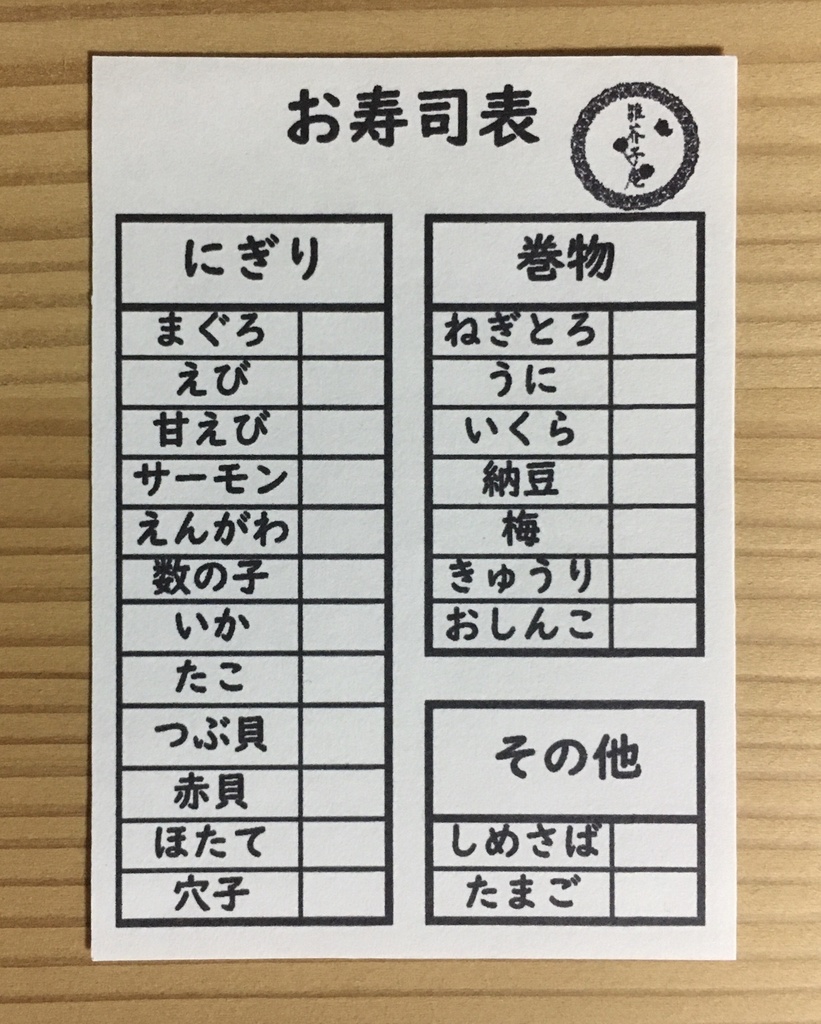 お寿司表
にぎり
まぐろ
えび
甘えび
サーモン
えんがわ
数の子
いか
たこ
つぶ貝
赤貝
ほたて
穴子
巻物
ねぎとろ
うに
いくら
納豆
梅
きゅうり
おしんこ
その他
しめさば
たまご